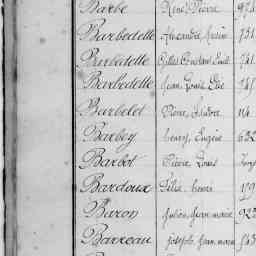 Barbe René Pierre 924
Barbedette Alexandre 731
Barbedette Gilles Constant 741
Barbedette Jean Louis 741
Barbelet Pierre Isidore 114
Barbey Henry Eugène 622
Barbot Pierre Louis
Bardoux Félix Henri 129
Baron Julien Jean marie 922
Barreau Joseph Jean marie 543